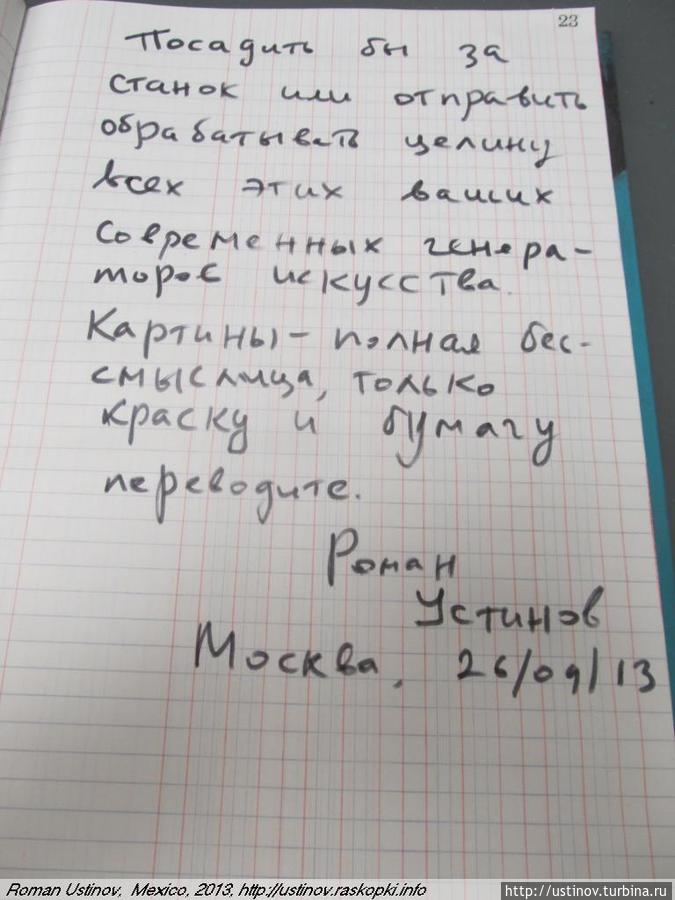 23
Посадить бы за
станок или отправить
обрабатывать целину
всех этих ваших
современных генера-
торов искусства.
Картины – полная бес-
смыслица, только
краску и бумагу
переводите.
Роман
Устинов
Москва, 26/09/13
Roman Ustinov, Mexico, 2013, http://ustinov.raskopki.info
http://ustinov.turbina.ru